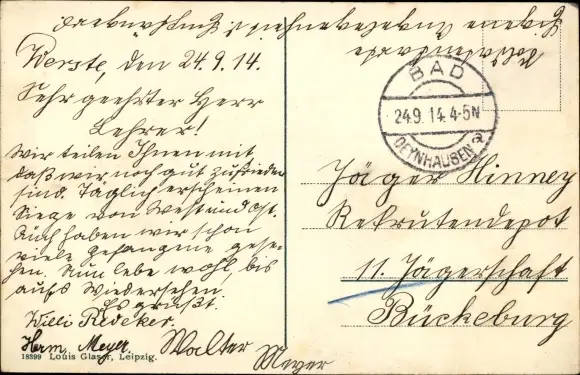 Werste, den 24.9.14.
Sehr geehrter Herr
Lehrer!
Wir teilen Ihnen mit
daß wir noch gut zufrieden
sind. Täglich erscheinen
Siege von West und Ost.
Auch haben wir schon
viele Gefangene gese-
hen. Nun lebe wohl, bis
aufs Wiedersehen
Es grüßt.
Willi Redeker.
Herm. Meyer.
Walter
Meyer
18399 Louis Glaser, Leipzig.
Feldpostkarte
BAD
24.9.14. 4-5N
OEYNHAUSEN 2
Jäger Hinney
Rekrutendepot
11. Jägerschaft
Bückeburg